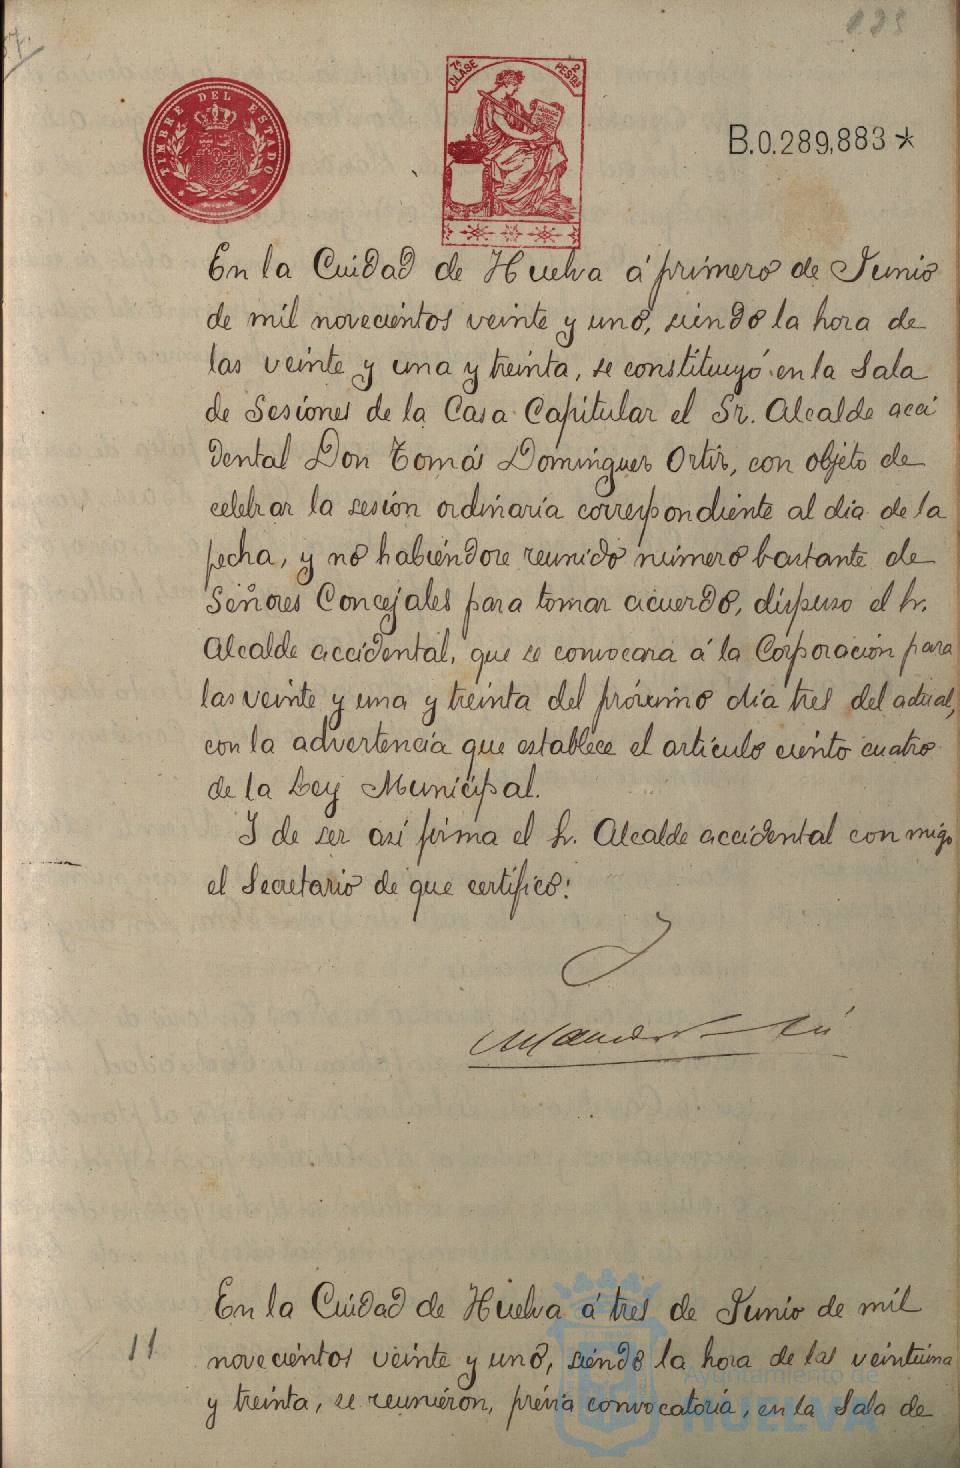 TIMBRE DEL ESTADO
7ª CLASE 2 PESTAS
B.0.289,883*
En la Cuidad de Huelva á primero de Junio
de mil novecientos veinte y uno, siendo la hora de
las veinte y una y treinta, se constituyó en la Sala
de Sesiones de la Casa Capitular el Sr. Alcalde acci
dental Don Tomás Dominguez Ortiz, con objeto de
celebrar la sesión ordinaria correspondiente al dia de la
fecha, y no habiéndose reunido número bastante de
Señores Concejales para tomar acuerdo, dispuso el Sr.
Alcalde accidental, que se convocara á la Corporación para
las veinte y una y treinta del próximo dia tres del actual,
con la advertencia que establece el artículo ciento cuatro
de la Ley Municipal.
Y de ser asi firma el Sr. Alcalde accidental con migo
el Secretario de que certifico:
En la Cuidad de Huelva á tres de Junio de mil
11
novecientos veinte y uno, siendo la hora de las veintiuna
y treinta, se reunieron, prévia convocatoria, en la Sala de
Ayuntamiento de
HUELVA